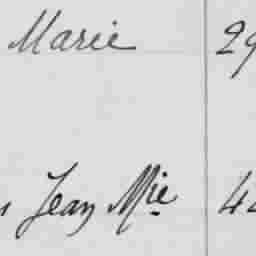 Marie 29
Jean Mie 44